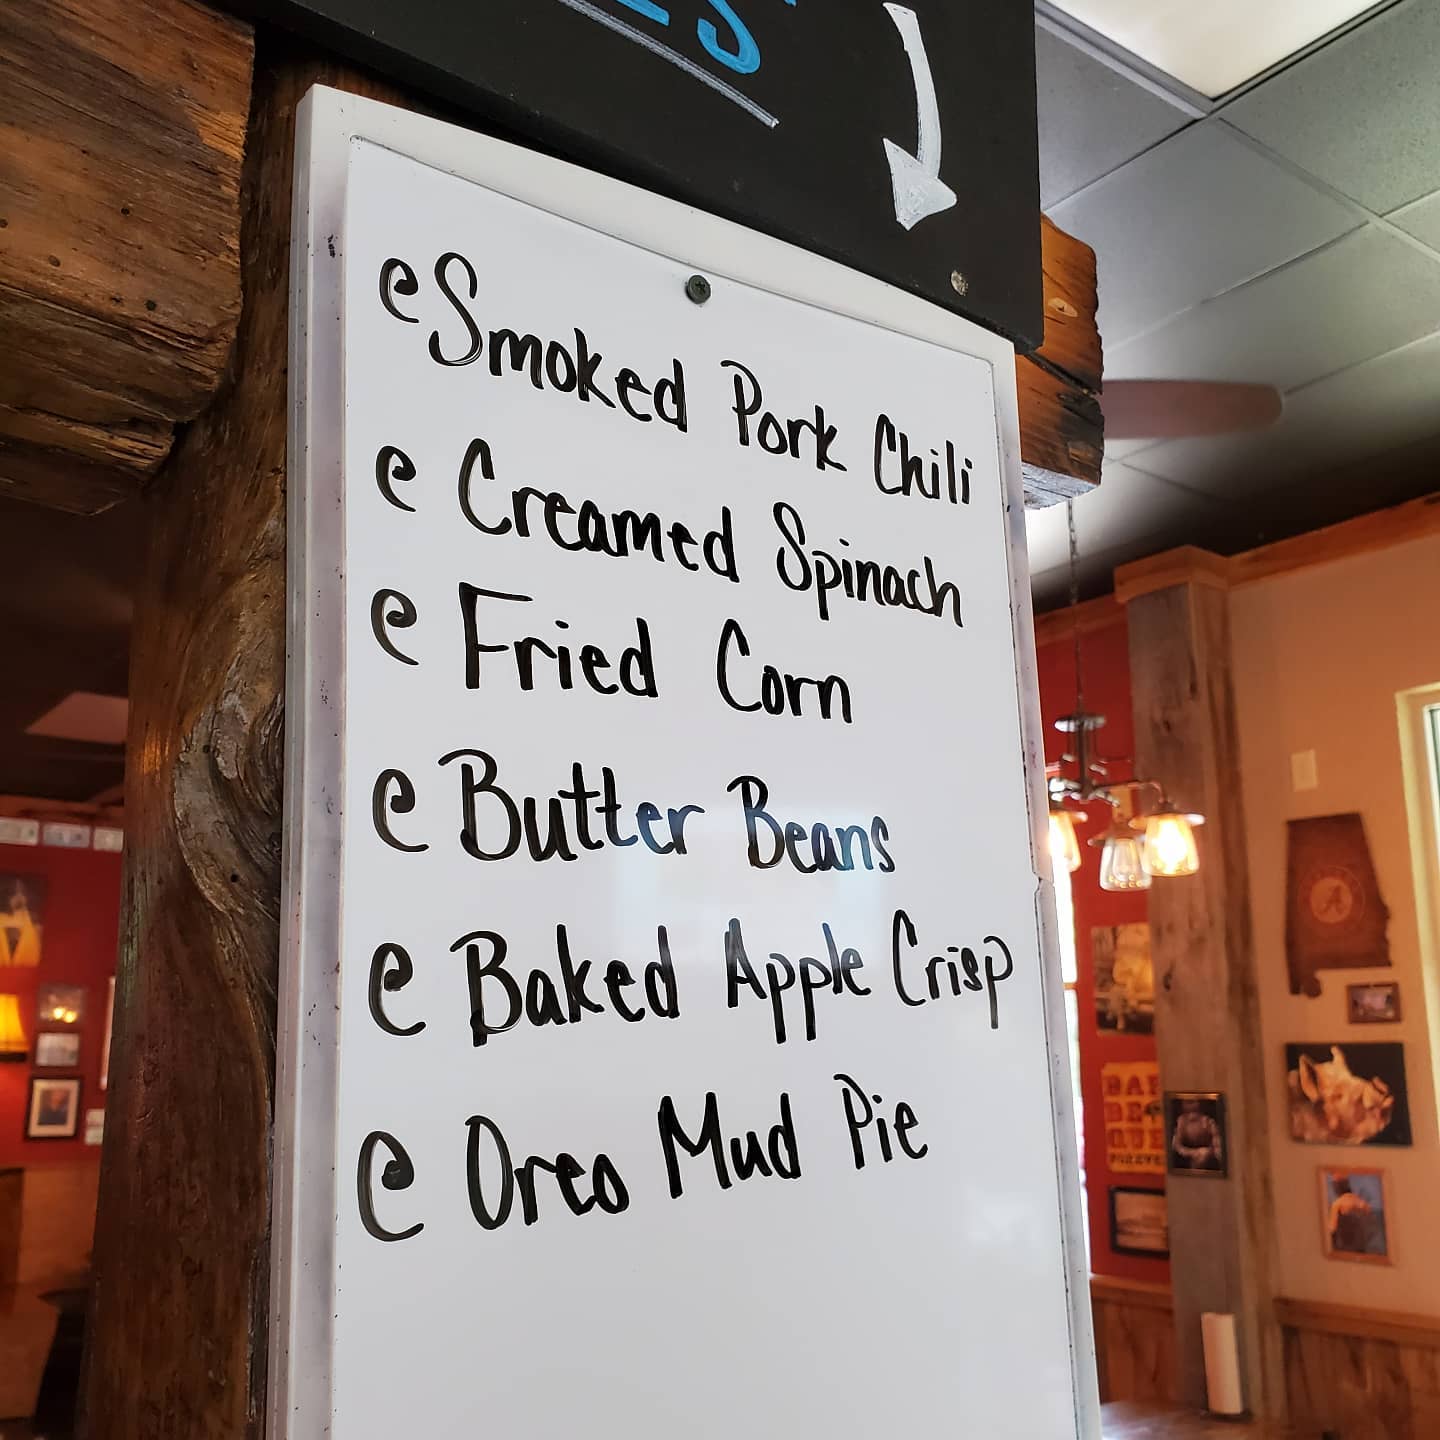 Smoked Pork Chili
Creamed Spinach
Fried Corn
Butter Beans
Baked Apple Crisp
Oreo Mud Pie
A
BAR
BE
QUE
FOREVER